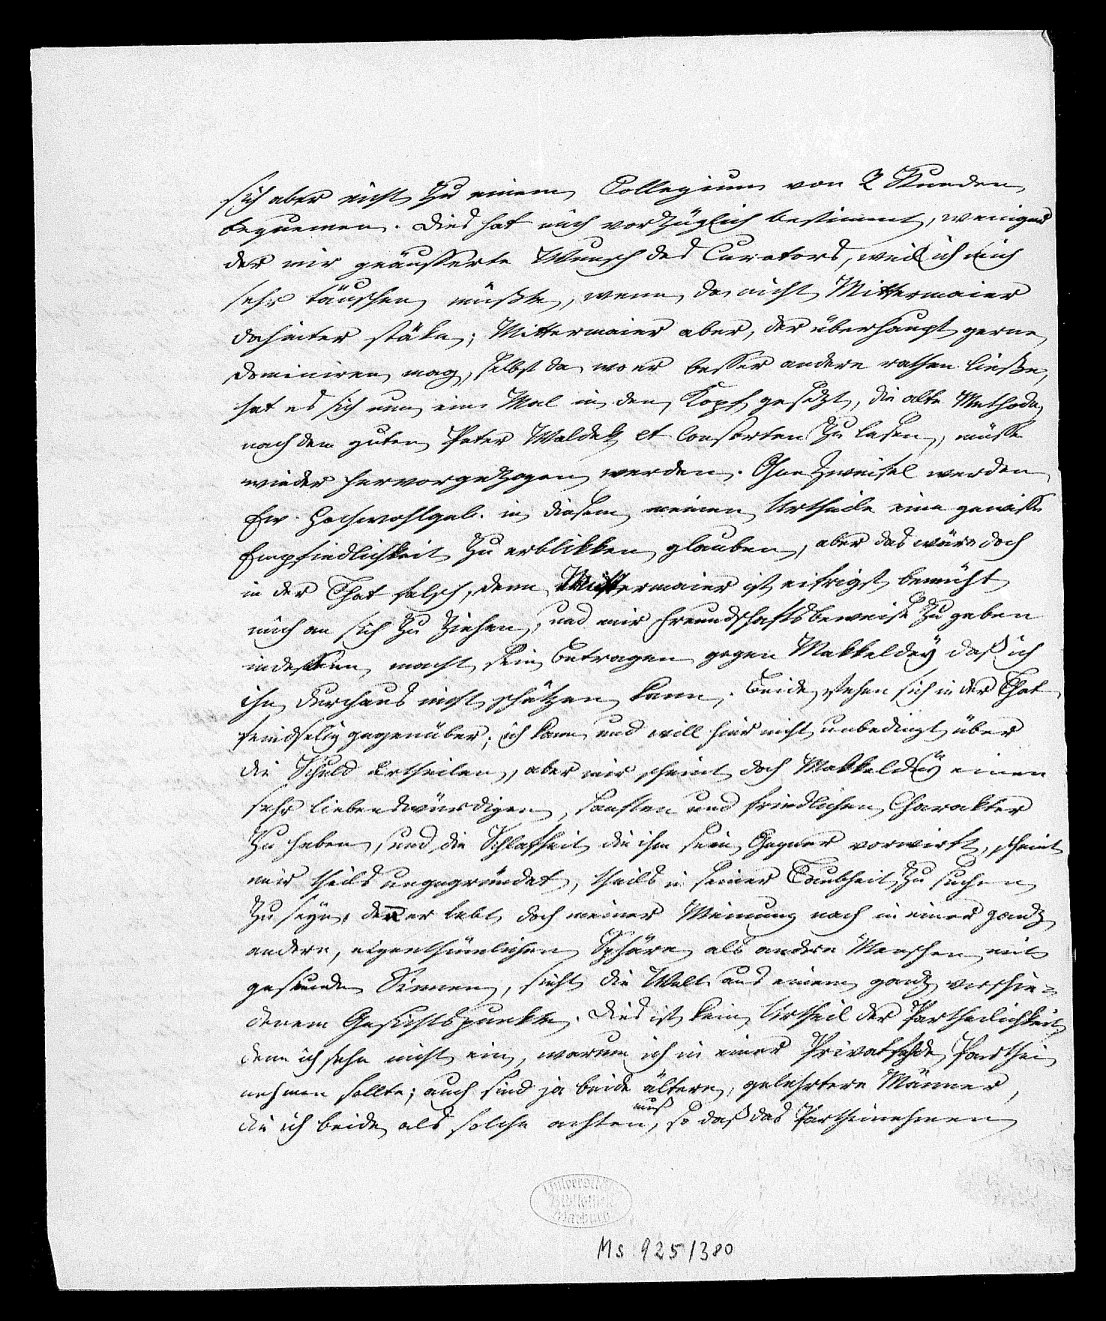 sich aber nicht zu einem Collegium von 2 Stunden
bequemen. Dies hat mich vorzüglich bestimmt, weniger
der mir geäusserte Wunsch des Curators, weil ich mich
sehr täuschen müßte, wenn da nicht Mittermaier
dahinter stäke; Mittermaier aber, der überhaupt gerne
dominiren mag, selbst da wo er besser andere rathen ließe,
hat es sich nun ein Mal in den Kopf gesetzt, die alte Methode,
nach dem guten Pater Waldek et Consorten zu lesen, müsse
wieder hervorgezogen werden. Ohne Zweifel werden
Ew. Hochwohlgeb. in diesem meinem Urtheile eine gewisse
Empfindlichkeit zu erblikken glauben, aber das wäre doch
in der That falsch, denn Mittermaier ist eifrigst bemüht
mich an sich zu ziehen, und mir Freundschaftsbeweise zu geben
indessen macht sein Betragen gegen Makkeldey daß ich
ihn durchaus nicht schätzen kann. Beide stehen sich in der That
feindselig gegenüber; ich kann und will hier nicht unbedingt über
die Schuld urtheilen, aber mir scheint doch Makkeldey einen
sehr liebenswürdigen, sanften und friedlichen Charakter
zu haben, und die Schlafheit die ihm sein Gegner vorwirft, scheint
mir theils ungegründet, theils in seiner Taubheit zu suchen
zu seyn, denn er lebt doch meiner Meinung nach in einer ganz
andern, eigenthümlichen Sphäre als andere Menschen mit
gesunden Sinnen, sieht die Welt aus einem ganz verschie-
denem Gesichtspunkte. Dies ist kein Urtheil der Partheilichkeit
denn ich sehe nicht ein, warum ich in einer Privatfehde Parthei
nehmen sollte; auch sind ja beide ältere, gelehrtere Männer,
die ich beide als solche achten muß, so daß das Partheinehmen
Universitäts
Bibliothek
Marburg
Ms 925/380